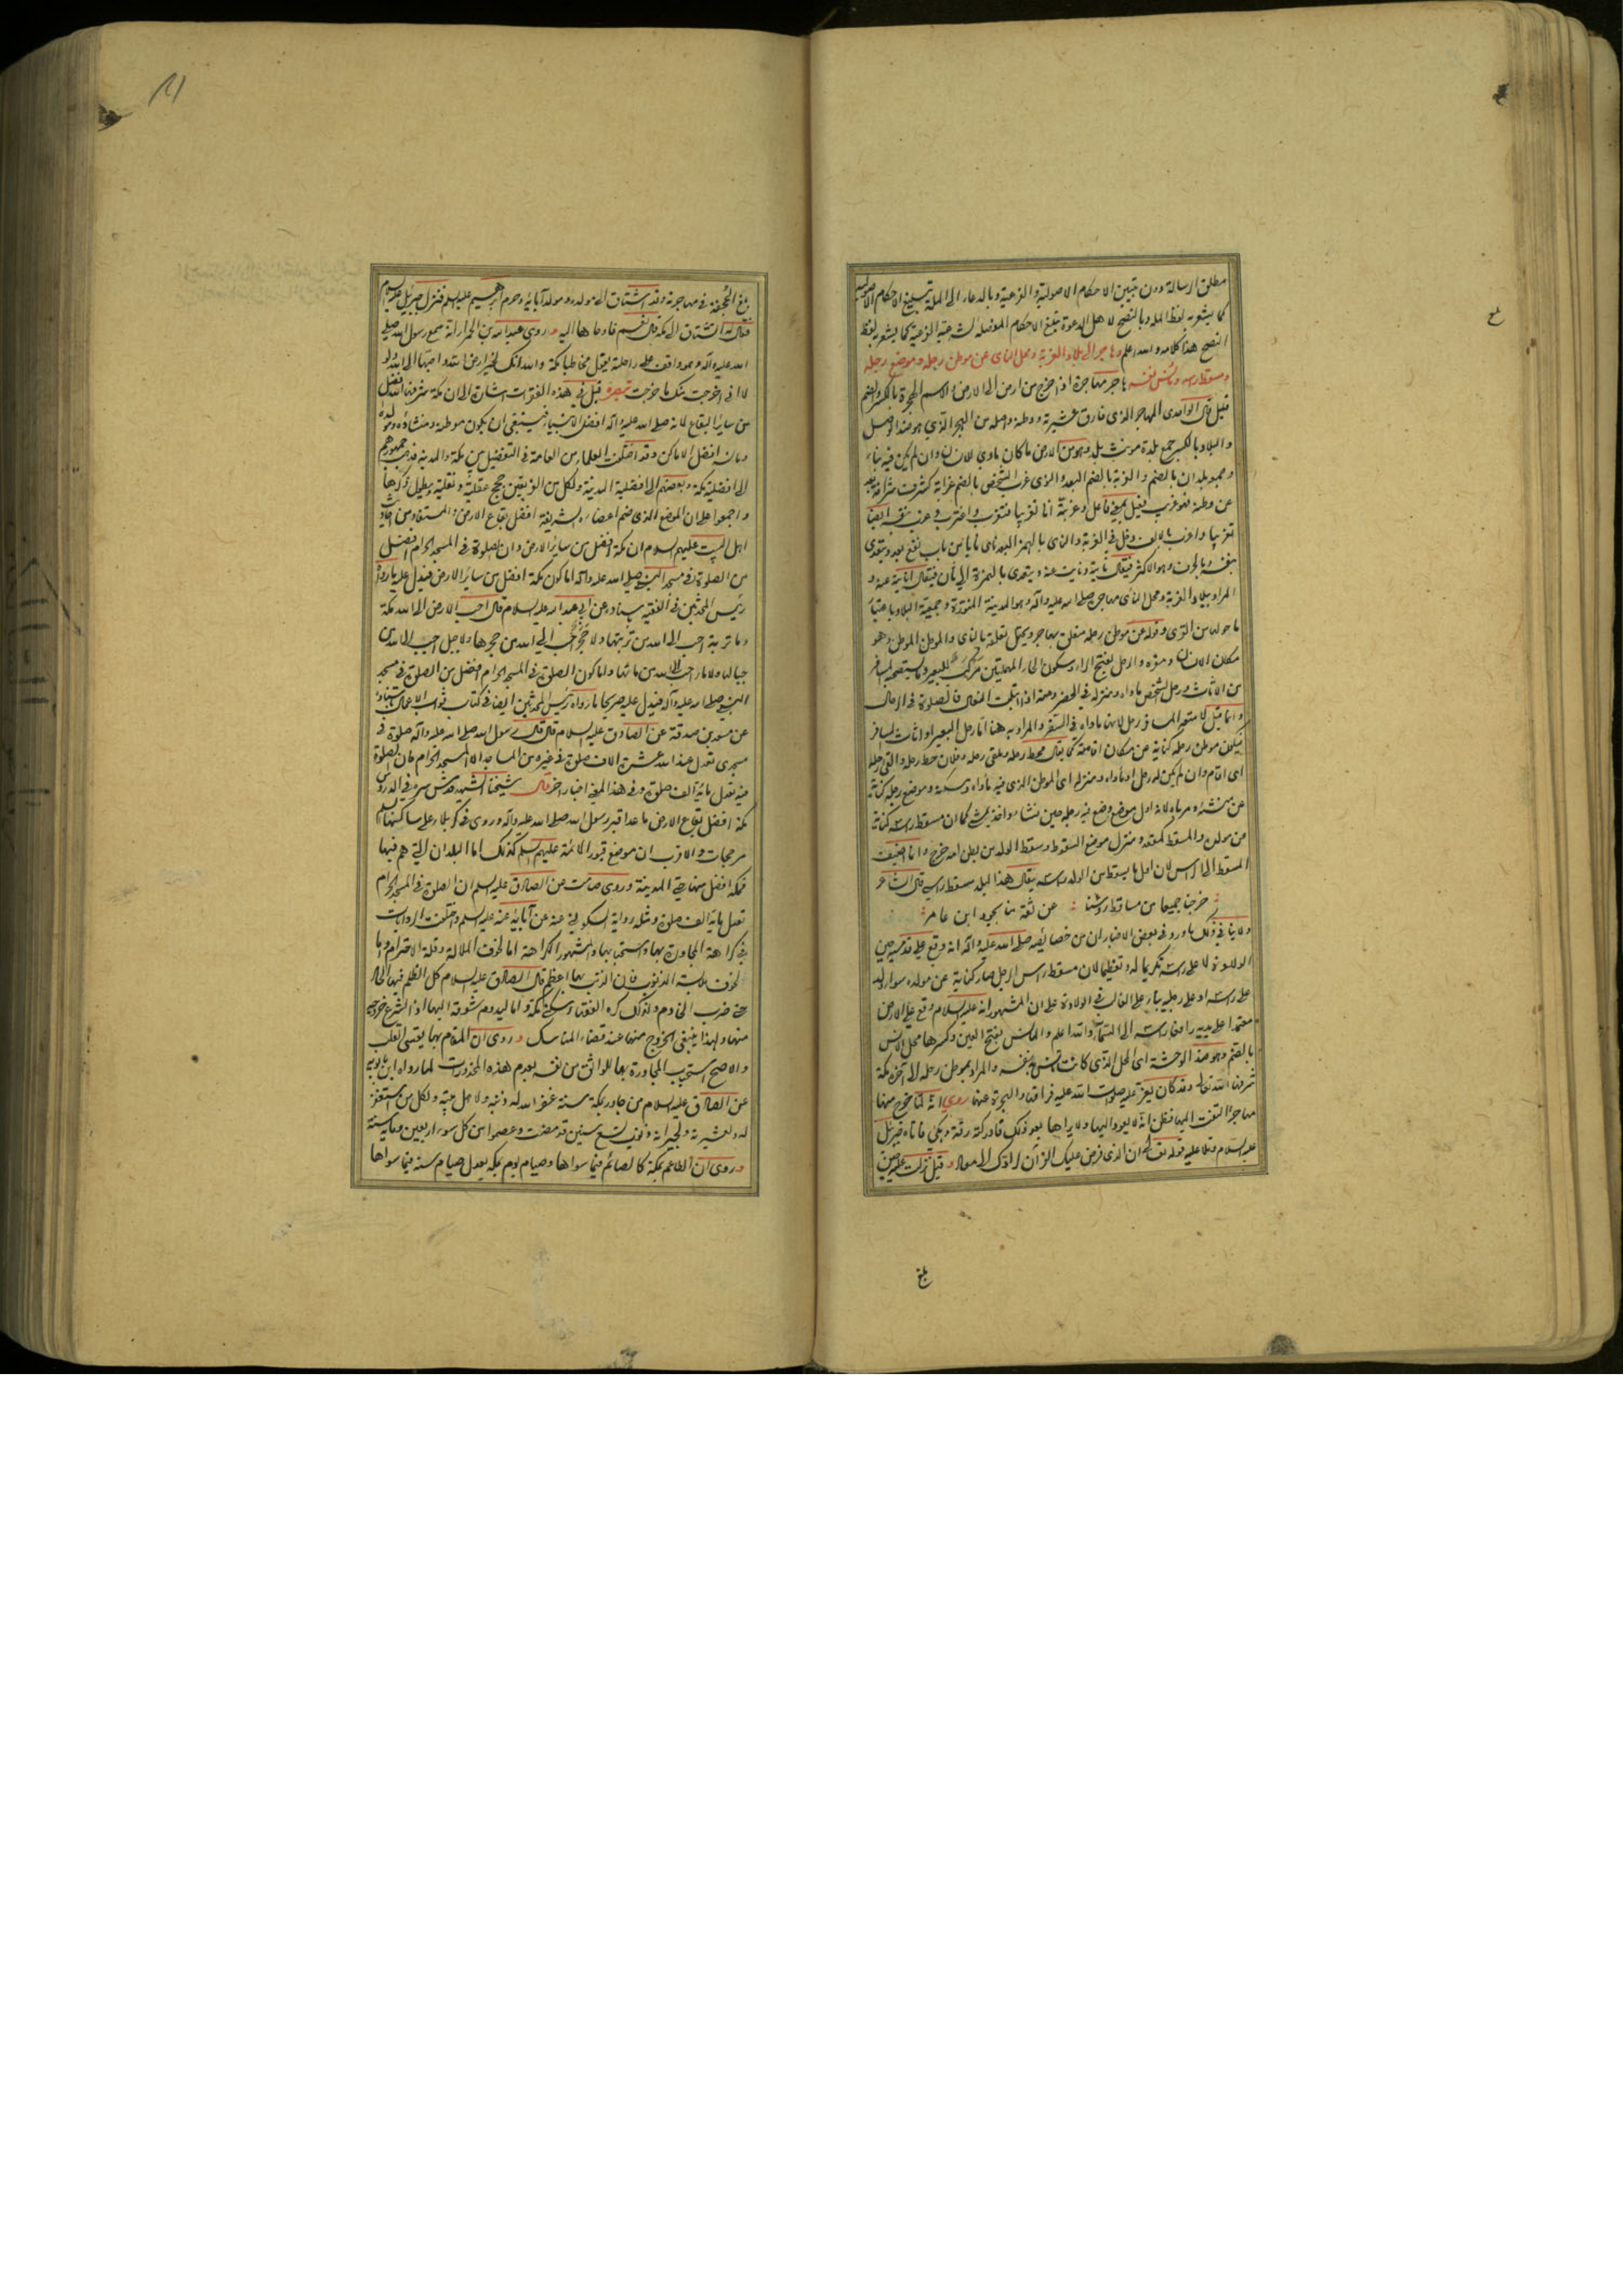 مطلق الرسالة دون تبيين الاحكام الاصولية والفرعية وبالدعاء الى الملة تبليغ الاحكام الاصولية
كما يشعر به لفظ الملة وبالنصح لاهل الدعوة تبليغ الاحكام المفصلة الشرعية الفرعية كما يشعر به لفظ
النصح هذا كلامه والله اعلم وهاجر الى بلاد الغربة ومحل النأى عن موطن رحله وموضع رجله
ومسقط راسه ومأنس نفسه هاجر مهاجرة اذا خرج من ارض الى ارض والاسم الهجرة بالكسر والضم
قيل قال الواحدى المهاجر الذى فارق عشيرته ووطنه واصله من الهجر الذي هو ضد الوصل
والبلاد بالكسر جمع بلدة مونث بلد وهو من الارض ما كان ماوى للانسان وان لم يكن فيه بناء
ويجمع بلدان بالضم والغربة بالضم البعد والذى غرب الشخص بالضم غرابة كشرف شرافة بعد
عن وطنه فهو غريب فعيل بمعنى فاعل وغربته انا تغريبا فتغرب واغترب وغرب بنفسه ايضا
تغريبا واغرب بالالف دخل في الغربة والنأى بالهمز البعد نأى نأيا من باب نفع بعد ويتعدى
بنفسه وبالحرف وهو الاكثر فيقال نأيته ونأيت عنه ويتعدى بالهمزة الى ثان فيقال انأيته عنه و
المراد ببلاد الغربة ومحل النأى مهاجره صلى الله عليه وآله وهو المدينة المنورة وجمعية البلاد باعتبار
ما حولها من القرى وقوله عن موطن رحله متعلق بهاجر ويحتمل تعلقه بالنأى والموطن الموطن وهو
مكان الانسان ومقره والرحل بفتح الراء وسكون الحاء المهملتين مركب للبعير وما يستصحبه المسافر
من الاثاث ورحل الشخص ماواه ومنزله في الحضر ومنه اذا ابتلت النعال فالصلوة في الرحال
وانما قيل لامتعة المسافر رحل لانها ماواه في السفر والمراد به هنا اما رحل البعير او اثاث المسافر
فيكون موطن رحله كناية عن مكان اقامته كما يقال محط رحله وملقى رحله وفلان حط رحله والقى رحله
اى اقام وان لم يكن له رحل او ماواه ومنزله اى الموطن الذى فيه ماواه ومسكنه وموضع رجله كناية
عن منشئه ومرباه لانه اول موضع وضع فيه رجله حين نشاء واخذ يمشى كما ان مسقط راسه كناية
عن مولده والمسقط كمقعد ومنزل موضع السقوط وسقط الولد من بطن امه خرج وانما اضيف
المسقط الى الراس لان اول ما يسقط من الولد راسه يقال هذا البلد مسقط راسي قال الشاعر
خرجنا جميعا من مساقط روسنا عن ثقة منا بجود ابن عامر
ولا ينافي ذلك ما ورد في بعض الاخبار ان من خصائصه صلى الله عليه وآله انه وقع على قدميه حين
الولادة لا على راسه تكريما له وتعظيما لان مسقط راس الرجل صار كناية عن مولده سواء ولد
على راسه او على رجليه بناء على الغالب في الولادة على ان المشهور انه عليه السلام وقع على الارض
معتمدا على يديه رافعا راسه الى السماء والله اعلم والمانس بفتح العين وكسرها محل الانس
بالضم وهو ضد الوحشة اى المحل الذى كانت تانس به نفسه والمراد بموطن رحله الى آخره مكة
شرفها الله تعالى وقد كان يعز عليه صلوات الله عليه فراقها والهجرة عنها روى انه لما خرج منها
مهاجرا التفت اليها فظن انه لا يعود اليها ولا يراها بعد ذلك فادركته رقة وبكى فاتاه جبرئيل
عليه السلام وتلا عليه قوله تعالى ان الذى فرض عليك القرآن لرادك الى معاد وقيل نزلت عليه حين
بلغ
بلغ
بلغ الجحفة في مهاجرته وقد اشتاق الى مولده ومولد آبائه وحرم ابرهيم عليه السلم فنزل جبرئيل عليه السلام
فقال له اتشتاق الى مكة قال نعم فاوحاها اليه وروى عبد الله بن الحمراء انه سمع رسول الله صلى
الله عليه وآله وهو واقف على راحلته يقول مخاطبا مكة والله انك لخير ارض الله واحبها الى الله ولو
لا انى اخرجت منك ما خرجت تبصرة قيل في هذه الفقرات اشارة الى ان مكة شرفها الله افضل
من سائر البقاع لانه صلى الله عليه وآله افضل الانبياء فينبغى ان يكون موطنه ومنشاؤه ومولده
ومانسه افضل الاماكن وقد اختلف العلماء من العامة في التفضيل بين مكة والمدينة فذهب جمهورهم
الى افضلية مكة وبعضهم الى افضلية المدينة ولكل من الفريقين حجج عقلية ونقلية يطول ذكرها
واجمعوا على ان الموضع الذى ضم اعضاءه الشريفة افضل بقاع الارض والمستفاد من احاديث
اهل البيت عليهم السلام ان مكة افضل من سائر الارض وان الصلوة في المسجد الحرام افضل
من الصلوة في مسجد النبى صلى الله عليه وآله اما كون مكة افضل من سائر الارض فيدل عليه ما رواه
رئيس المحدثين في الفقيه باسناده عن ابي عبد الله عليه السلام قال احب الارض الى الله مكة
وما تربة احب الى الله من تربتها ولا حجر احب الى الله من حجرها ولا جبل احب الى الله من
جبالها ولا ماء احب الى الله من مائها واما كون الصلوة في المسجد الحرام افضل من الصلوة في مسجد
النبى صلى الله عليه وآله فيدل عليه صريحا ما رواه رئيس المحدثين ايضا في كتاب ثواب الاعمال باسناده
عن مسعدة بن صدقة عن الصادق عليه السلام قال قال رسول الله صلى الله عليه وآله صلوة في
مسجدى تعدل عند الله عشرة الاف صلوة في غيره من المساجد الا المسجد الحرام فان الصلوة
فيه تعدل مائة الف صلوة وفي هذا المعنى اخبار اخر قال شيخنا الشهيد قدس سره في الدروس
مكة افضل بقاع الارض ما عدا قبر رسول الله صلى الله عليه وآله وروى في كربلاء على ساكنها السلم
مرجحات والاقرب ان موضع قبور الائمة عليهم السلم كذلك اما البلدان التي هم فيها
فمكة افضل منها حتى المدينة وروى صامت عن الصادق عليه السلم ان الصلوة في المسجد الحرام
تعدل مائة الف صلوة ومثله رواية السكونى عنه عن آبائه عنه عليه السلم واختلفت الروايات
في كراهة المجاورة بها واستحبابها والمشهور الكراهة اما لخوف الملالة وقلة الاحترام واما
لخوف ملابسة الذنوب فان الذنب بها اعظم قال الصادق عليه السلام كل الظلم فيها الحاد
حتى ضرب الخادم ولذلك كره الفقهاء سكنى مكة واما ليدوم شوقه اليها اذا اسرع خروجه
منها ولهذا ينبغى الخروج منها عند قضاء المناسك وروى ان المقام بها يقسى القلب
والاصح استحباب المجاورة بها للواثق من نفسه بعدم هذه المحذورات لما رواه ابن بابويه
عن الصادق عليه السلام من جاور بمكة سنة غفر الله له ذنبه ولاهل بيته ولكل من استغفر
له ولعشيرته ولجيرانه ذنوب تسع سنين قد مضت وعصموا من كل سوء اربعين ومائة سنة
وروى ان الطاعم بمكة كالصائم فيما سواها وصيام يوم بمكة يعدل صيام سنة فيما سواها